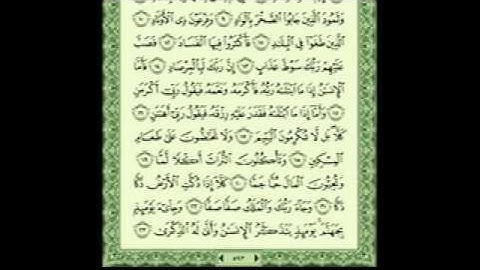 وَثَمُودَ ٱلَّذِينَ جَابُوا۟ ٱلصَّخْرَ بِٱلْوَادِ ﴿٩﴾ وَفِرْعَوْنَ ذِى ٱلْأَوْتَادِ ﴿١٠﴾
ٱلَّذِينَ طَغَوْا۟ فِى ٱلْبِلَٰدِ ﴿١١﴾ فَأَكْثَرُوا۟ فِيهَا ٱلْفَسَادَ ﴿١٢﴾ فَصَبَّ
عَلَيْهِمْ رَبُّكَ سَوْطَ عَذَابٍ ﴿١٣﴾ إِنَّ رَبَّكَ لَبِٱلْمِرْصَادِ ﴿١٤﴾ فَأَمَّا
ٱلْإِنسَٰنُ إِذَا مَا ٱبْتَلَىٰهُ رَبُّهُۥ فَأَكْرَمَهُۥ وَنَعَّمَهُۥ فَيَقُولُ رَبِّىٓ أَكْرَمَنِ
﴿١٥﴾ وَأَمَّآ إِذَا مَا ٱبْتَلَىٰهُ فَقَدَرَ عَلَيْهِ رِزْقَهُۥ فَيَقُولُ رَبِّىٓ أَهَٰنَنِ ﴿١٦﴾
كَلَّا بَل لَّا تُكْرِمُونَ ٱلْيَتِيمَ ﴿١٧﴾ وَلَا تَحَٰٓضُّونَ عَلَىٰ طَعَامِ
ٱلْمِسْكِينِ ﴿١٨﴾ وَتَأْكُلُونَ ٱلتُّرَاثَ أَكْلًا لَّمًّا ﴿١٩﴾
وَتُحِبُّونَ ٱلْمَالَ حُبًّا جَمًّا ﴿٢٠﴾ كَلَّآ إِذَا دُكَّتِ ٱلْأَرْضُ دَكًّا
دَكًّا ﴿٢١﴾ وَجَآءَ رَبُّكَ وَٱلْمَلَكُ صَفًّا صَفًّا ﴿٢٢﴾ وَجِا۟ىٓءَ يَوْمَئِذٍۭ
بِجَهَنَّمَ يَوْمَئِذٍ يَتَذَكَّرُ ٱلْإِنسَٰنُ وَأَنَّىٰ لَهُ ٱلذِّكْرَىٰ ﴿٢٣﴾
٥٩٣